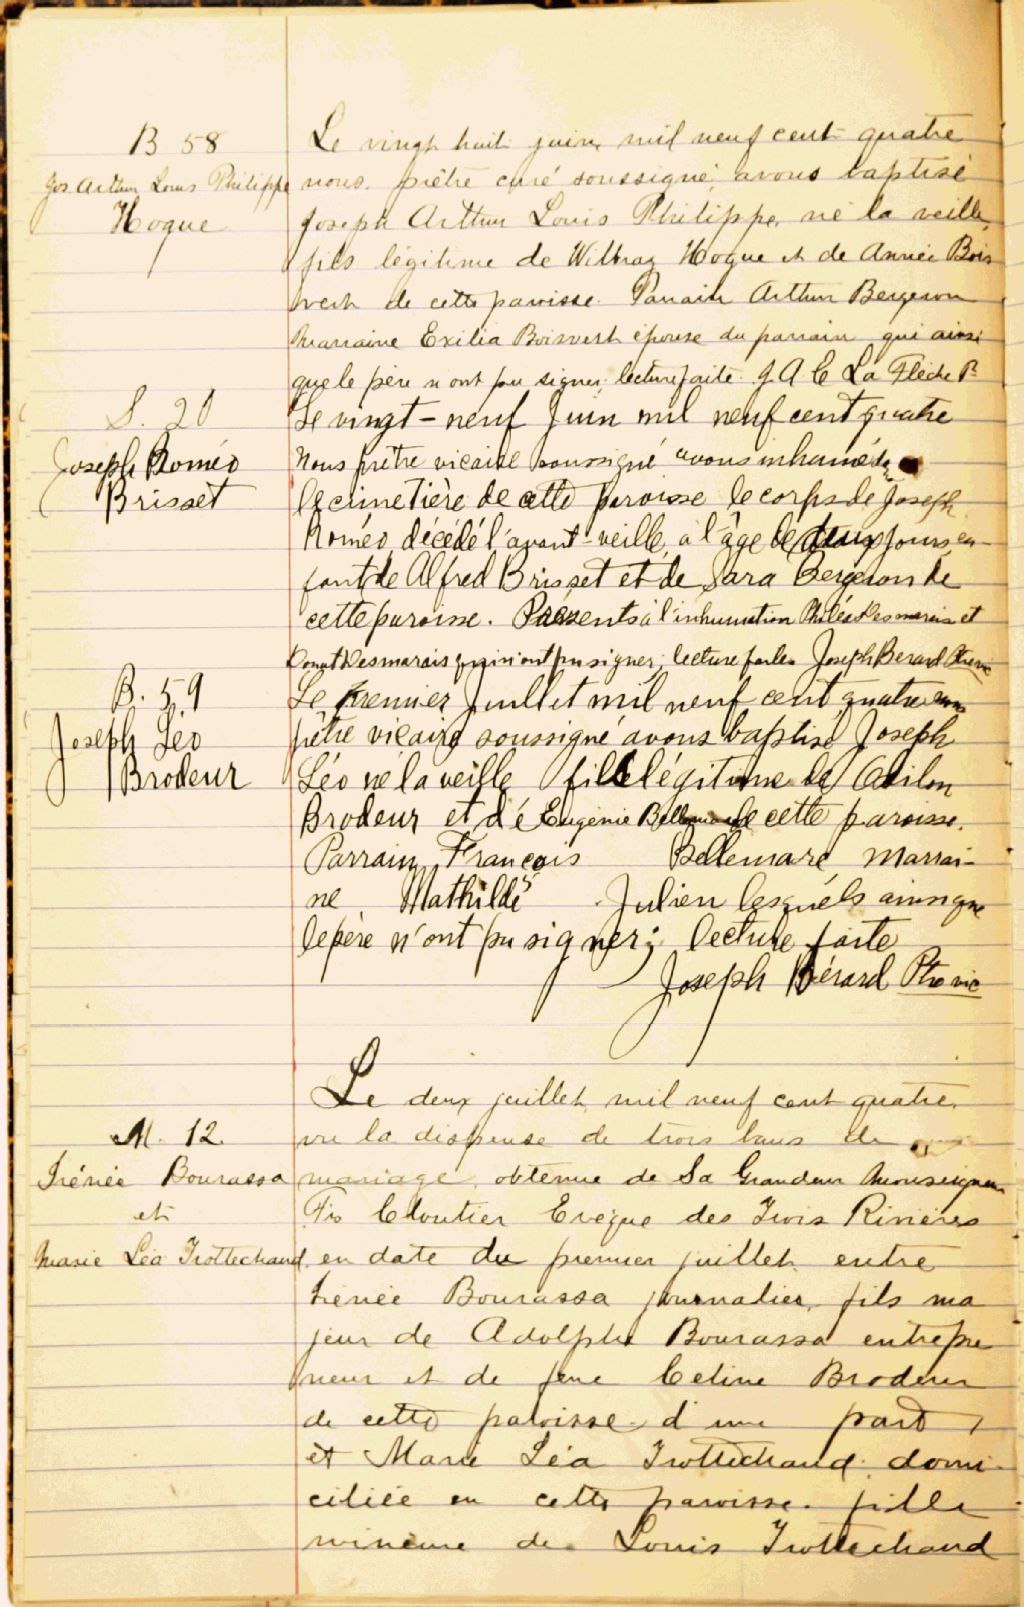 B 58
Jos. Arthur Louis Philippe
Hogue
Le vingt huit juin, mil neuf cent quatre
nous, prêtre curé soussigné, avons baptisé
Joseph Arthur Louis Philippe, né la veille,
fils légitime de Wilbray Hogue et de Annie Bois
vert de cette paroisse. Parrain Arthur Bergeron
Marraine Exilia Boisvert épouse du parrain qui ainsi
que le père n'ont pu signer, lecture faite. J A E La Flèche Pr
S. 20
Joseph Roméo
Brisset
Le vingt-neuf Juin mil neuf cent quatre
Nous prêtre vicaire soussigné avons inhumé ds
le cimetière de cette paroisse le corps de Joseph
Roméo, décédé l'avant-veille, à l'âge de deux jours, en-
fant de Alfred Brisset et de Sara Bergeron de
cette paroisse. Présents à l'inhumation Philéa Desmarais et
Donat Desmarais qui n'ont pu signer; lecture faite Joseph Bérard Ptre vic
B. 59
Joseph Léo
Brodeur
Le premier Juillet mil neuf cent quatre nous
prêtre vicaire soussigné avons baptisé Joseph
Léo né la veille fils légitime de Odilon
Brodeur et de Eugénie Bellemare de cette paroisse.
Parrain François Bellemare Marrai-
ne Mathilde Julien lesquels ainsi que
le père n'ont pu signer; lecture faite
Joseph Bérard Ptre vic
M. 12.
Irénée Bourassa
et
Marie Léa Trottechaud
Le deux juillet mil neuf cent quatre,
vu la dispense de trois bans de
mariage obtenue de Sa Grandeur Monseigneur
Frs Cloutier Evêque des Trois Rivières
en date du premier juillet, entre
Irénée Bourassa journalier, fils ma
jeur de Adolphe Bourassa entrepre
neur et de feue Celine Brodeur
de cette paroisse d'une part,
et Marie Léa Trottechaud domi-
ciliée en cette paroisse fille
mineure de Louis Trottechaud